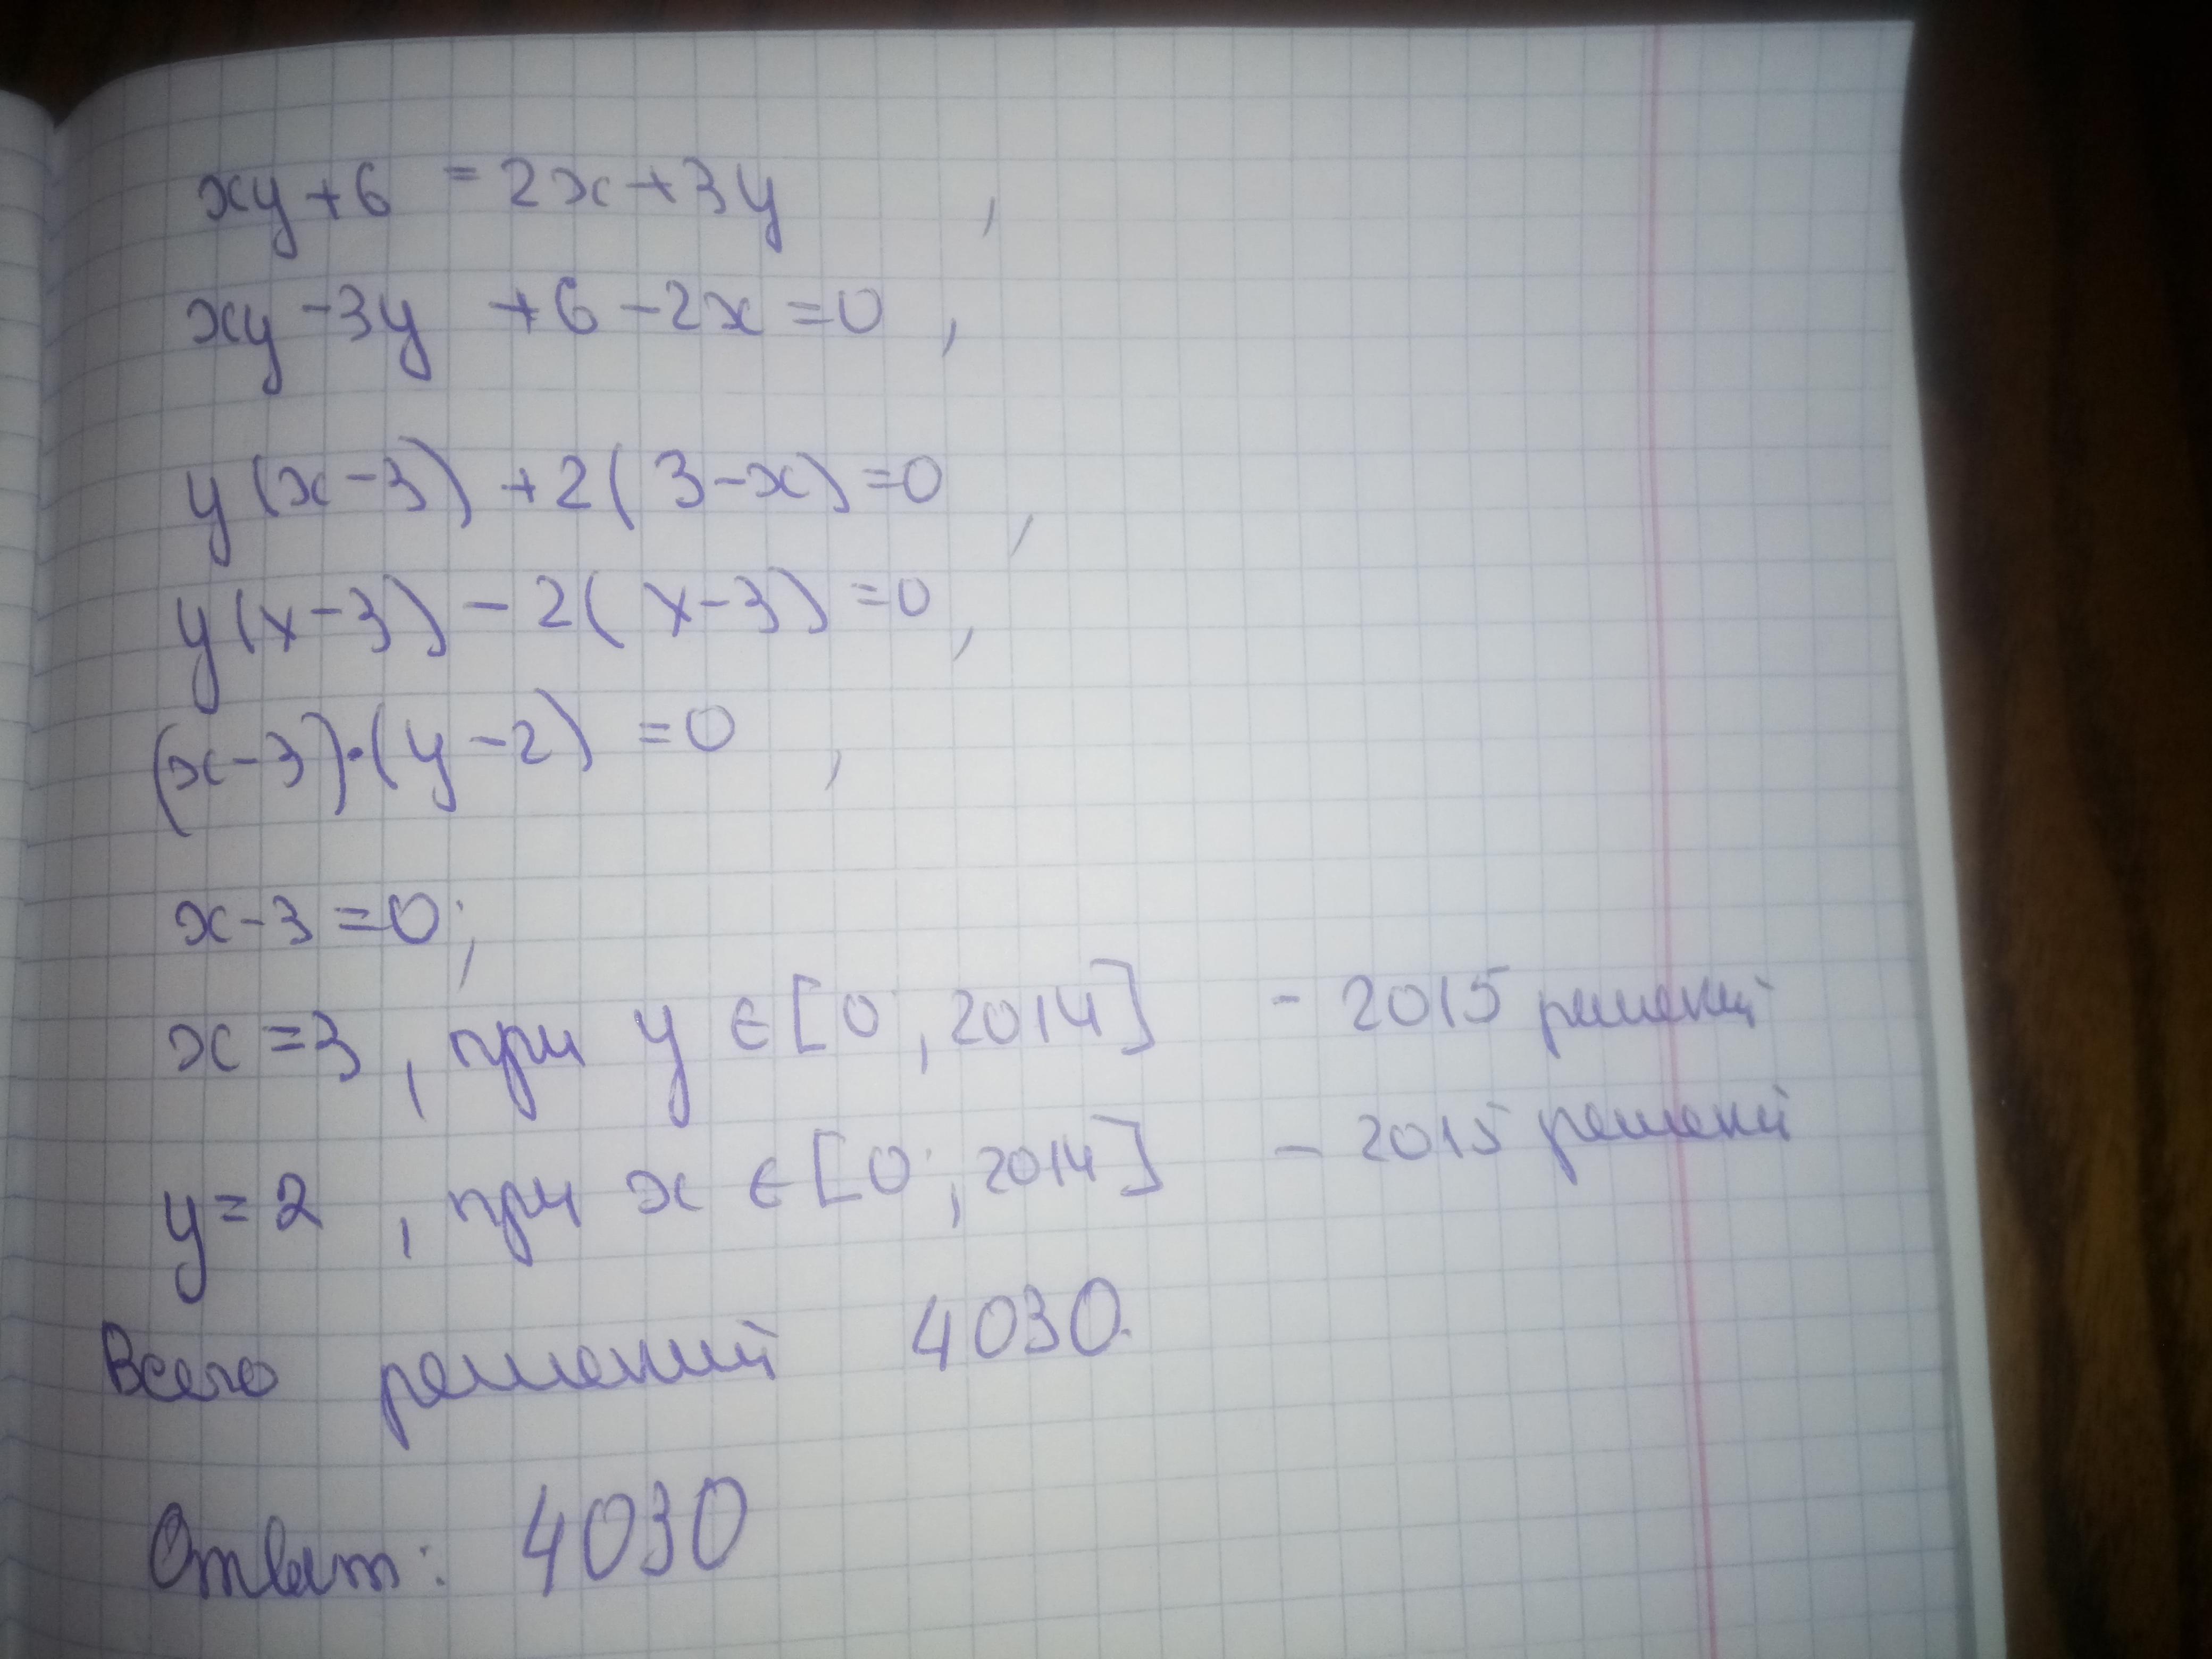 xy + 6 = 2x + 3y ,
xy - 3y + 6 - 2x = 0 ,
y(x-3) + 2(3-x) = 0 ,
y(x-3) - 2(x-3) = 0 ,
(x-3)·(y-2) = 0 ,
x - 3 = 0;
x = 3 , при y ∈ [0; 2014] - 2015 решений
y = 2 , при x ∈ [0; 2014] - 2015 решений
Всего решений 4030.
Ответ: 4030